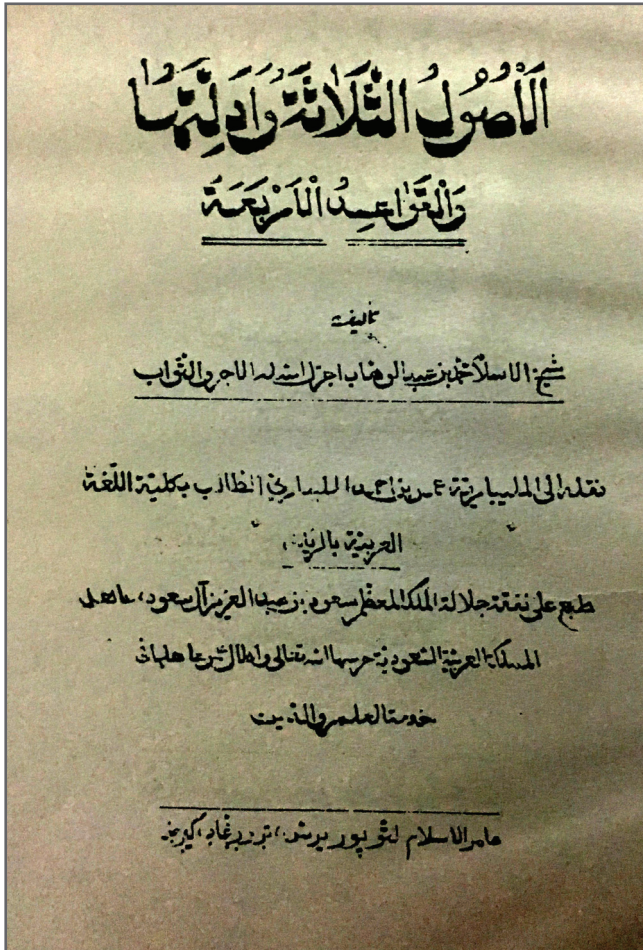 الْأُصُولُ الثَّلَاثَةُ وَأَدِلَّتُهَا
وَالْقَوَاعِدُ الْأَرْبَعَةُ
تأليف
شيخ الاسلام محمد بن عبد الوهاب اجزل الله له الاجر والثواب
نقله الى المليبارية عمر بن احمد المليباري الطالب بكلية اللغة
العربية بالرياض
طبع على نفقة جلالة الملك المعظم سعود بن عبد العزيز آل سعود، عاهل
المملكة العربية السعودية حرسها الله تعالى واطال عمر عاهلها في
خدمة العلم والدين
عامر الاسلام لتوپور پريس،